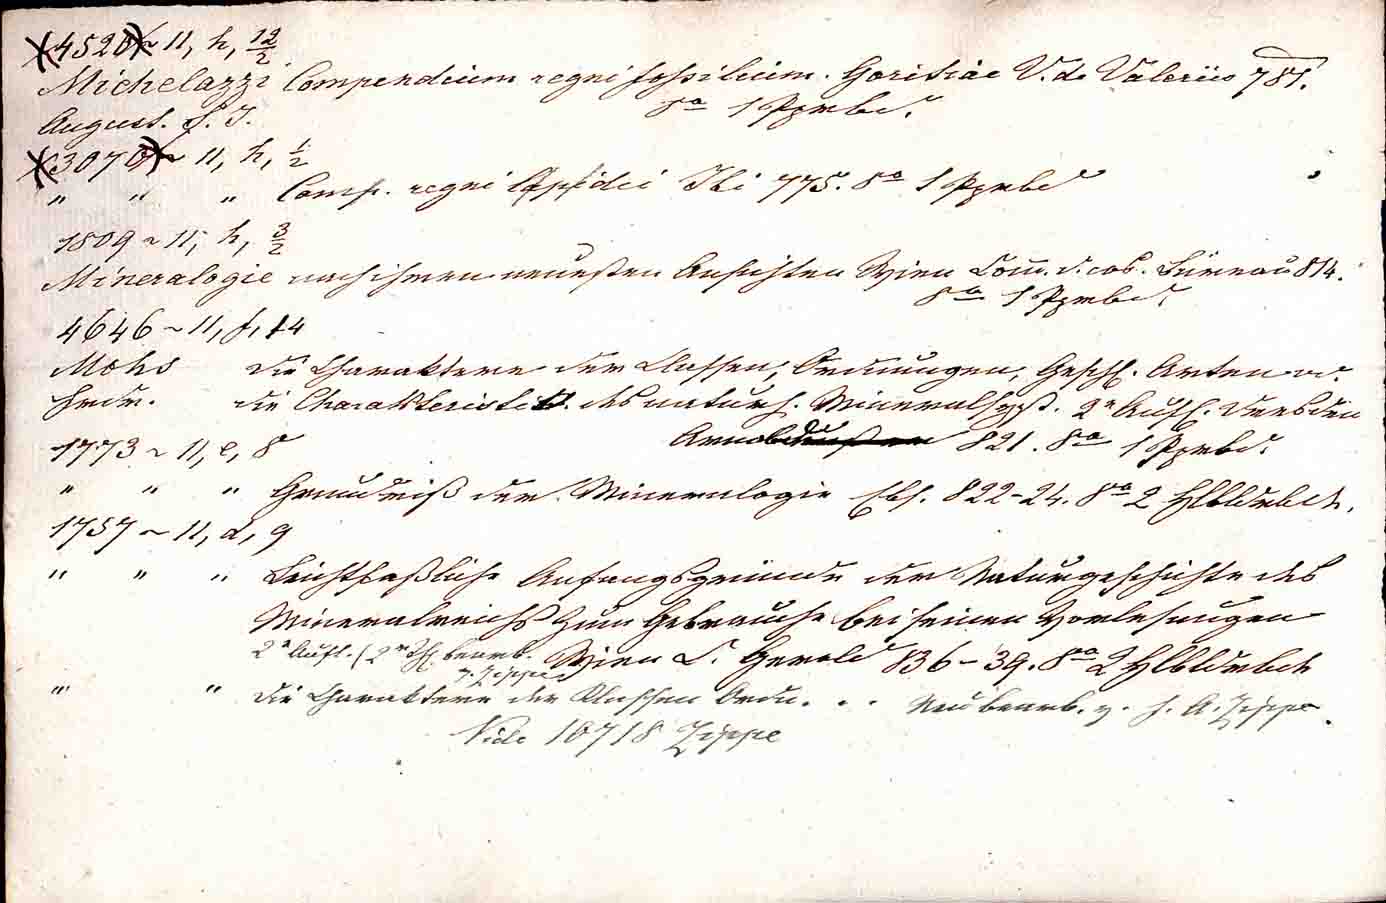 4520 ~ 11, h, 12/2
Michelazzi Compendium regni fossilium. Goritiae V. de Valeriis 781.
August. S. J. 8° 1 Pprbd.
3070 ~ 11, h, 1/2
" " " Comp. regni lapidei Ibi 775. 8° 1 Pprbd
1809 ~ 11, h, 3/2
Mineralogie nach ihren neuesten Ansichten Wien Com. d. cos. Büreau 814.
8° 1 Pprbd.
4646 ~ 11, f, 14
Mohs die Charaktere der Classen, Ordnungen, Geschl. Arten od.
Fredr. die Charakteristik des naturh. Mineralsyst. 2e Aufl. Dresden
1773 ~ 11, e, 8 Arnold 821. 8° 1 Pprbd.
" " " Grundriß der Mineralogie Ebf. 822-24. 8° 2 Hlbldrbde.
1757 ~ 11, d, 9
" " " Leichtfaßliche Anfangsgründe der Naturgeschichte des
Mineralreichs zum Gebrauche bei seinen Vorlesungen
2e Aufl. (2r Th. bearb. v. Zippe) Wien C. Gerold 836-39. 8° 2 Hlbldrbde
" " die Charaktere der Klassen Ordn. . . Neu bearb. v. F. X. Zippe.
Vide 10718 Zippe